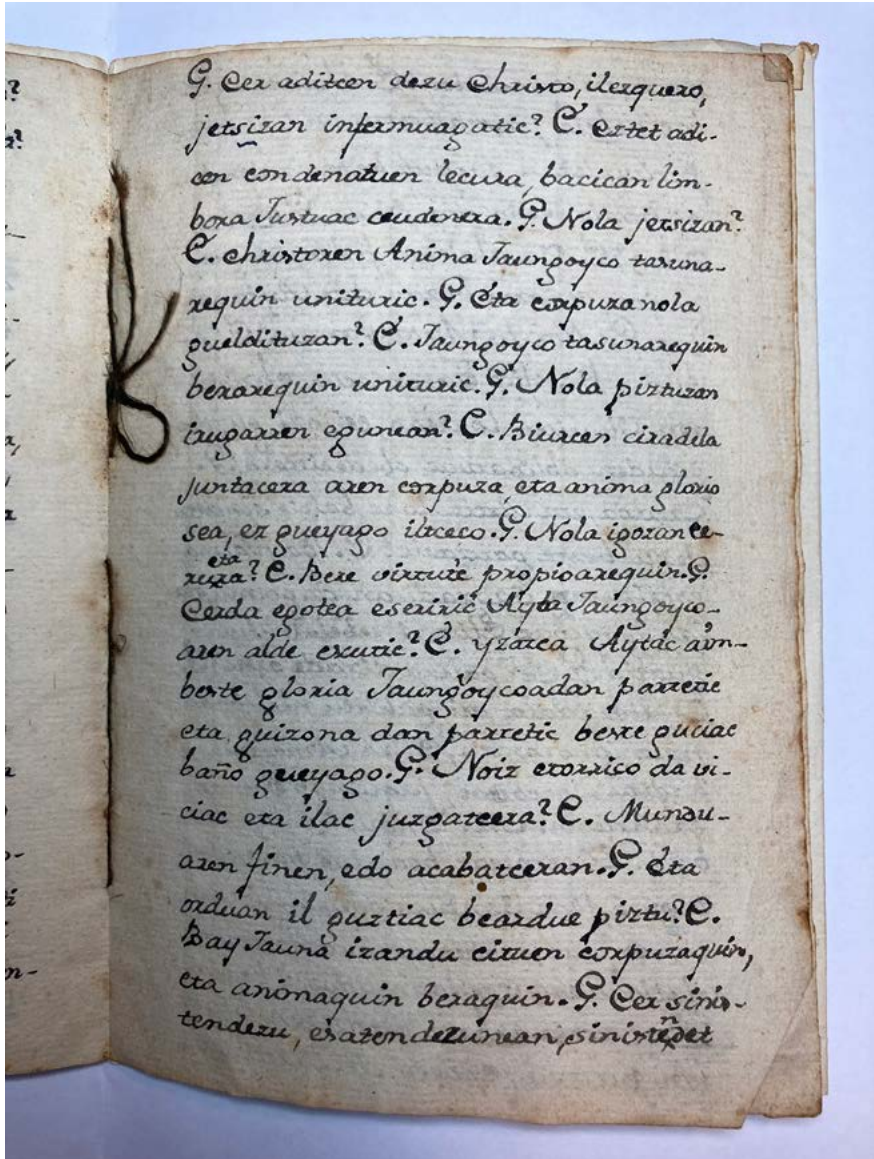 ?
?
G. Cer aditcen dezu Christo, ilezquero,
jetsizan infermuagatic? C. Eztet adi-
cen condenatuen lecura, bacican lim-
bora Justuac ceudenera. G. Nola jetsizan?
C. Christoren Anima Jaungoyco tasuna-
requin unituric. G. Eta corpuza nola
gueldituzan? C. Jaungoyco tasunarequin
berarequin unituric. G. Nola piztuzan
irugarren egunean? C. Biurcen ciradela
juntacera aren corpuza, eta anima glorio
sea, ez gueyago iltceco. G. Nola igozan ce-
eta
rura? C. Bere virtute propioarequin. G.
Cerda egotea eseriric Ayta Jaungoyco-
aren alde escutic? C. yzatea Aytac aun-
beste gloria Jaungoycoadan parretic
eta guizona dan parretic beste guciac
baño gueyago. G. Noiz etorrico da vi-
ciac eta ilac juzgatcera? C. Mundu-
aren finen, edo acabatceran. G. Eta
orduan il guztiac beardue piztu? C.
Bay Jauna izandu cituen corpuzaquin,
eta animaquin beraquin. G. Cer sinis-
tendezu, esatendezunean, sinistendet